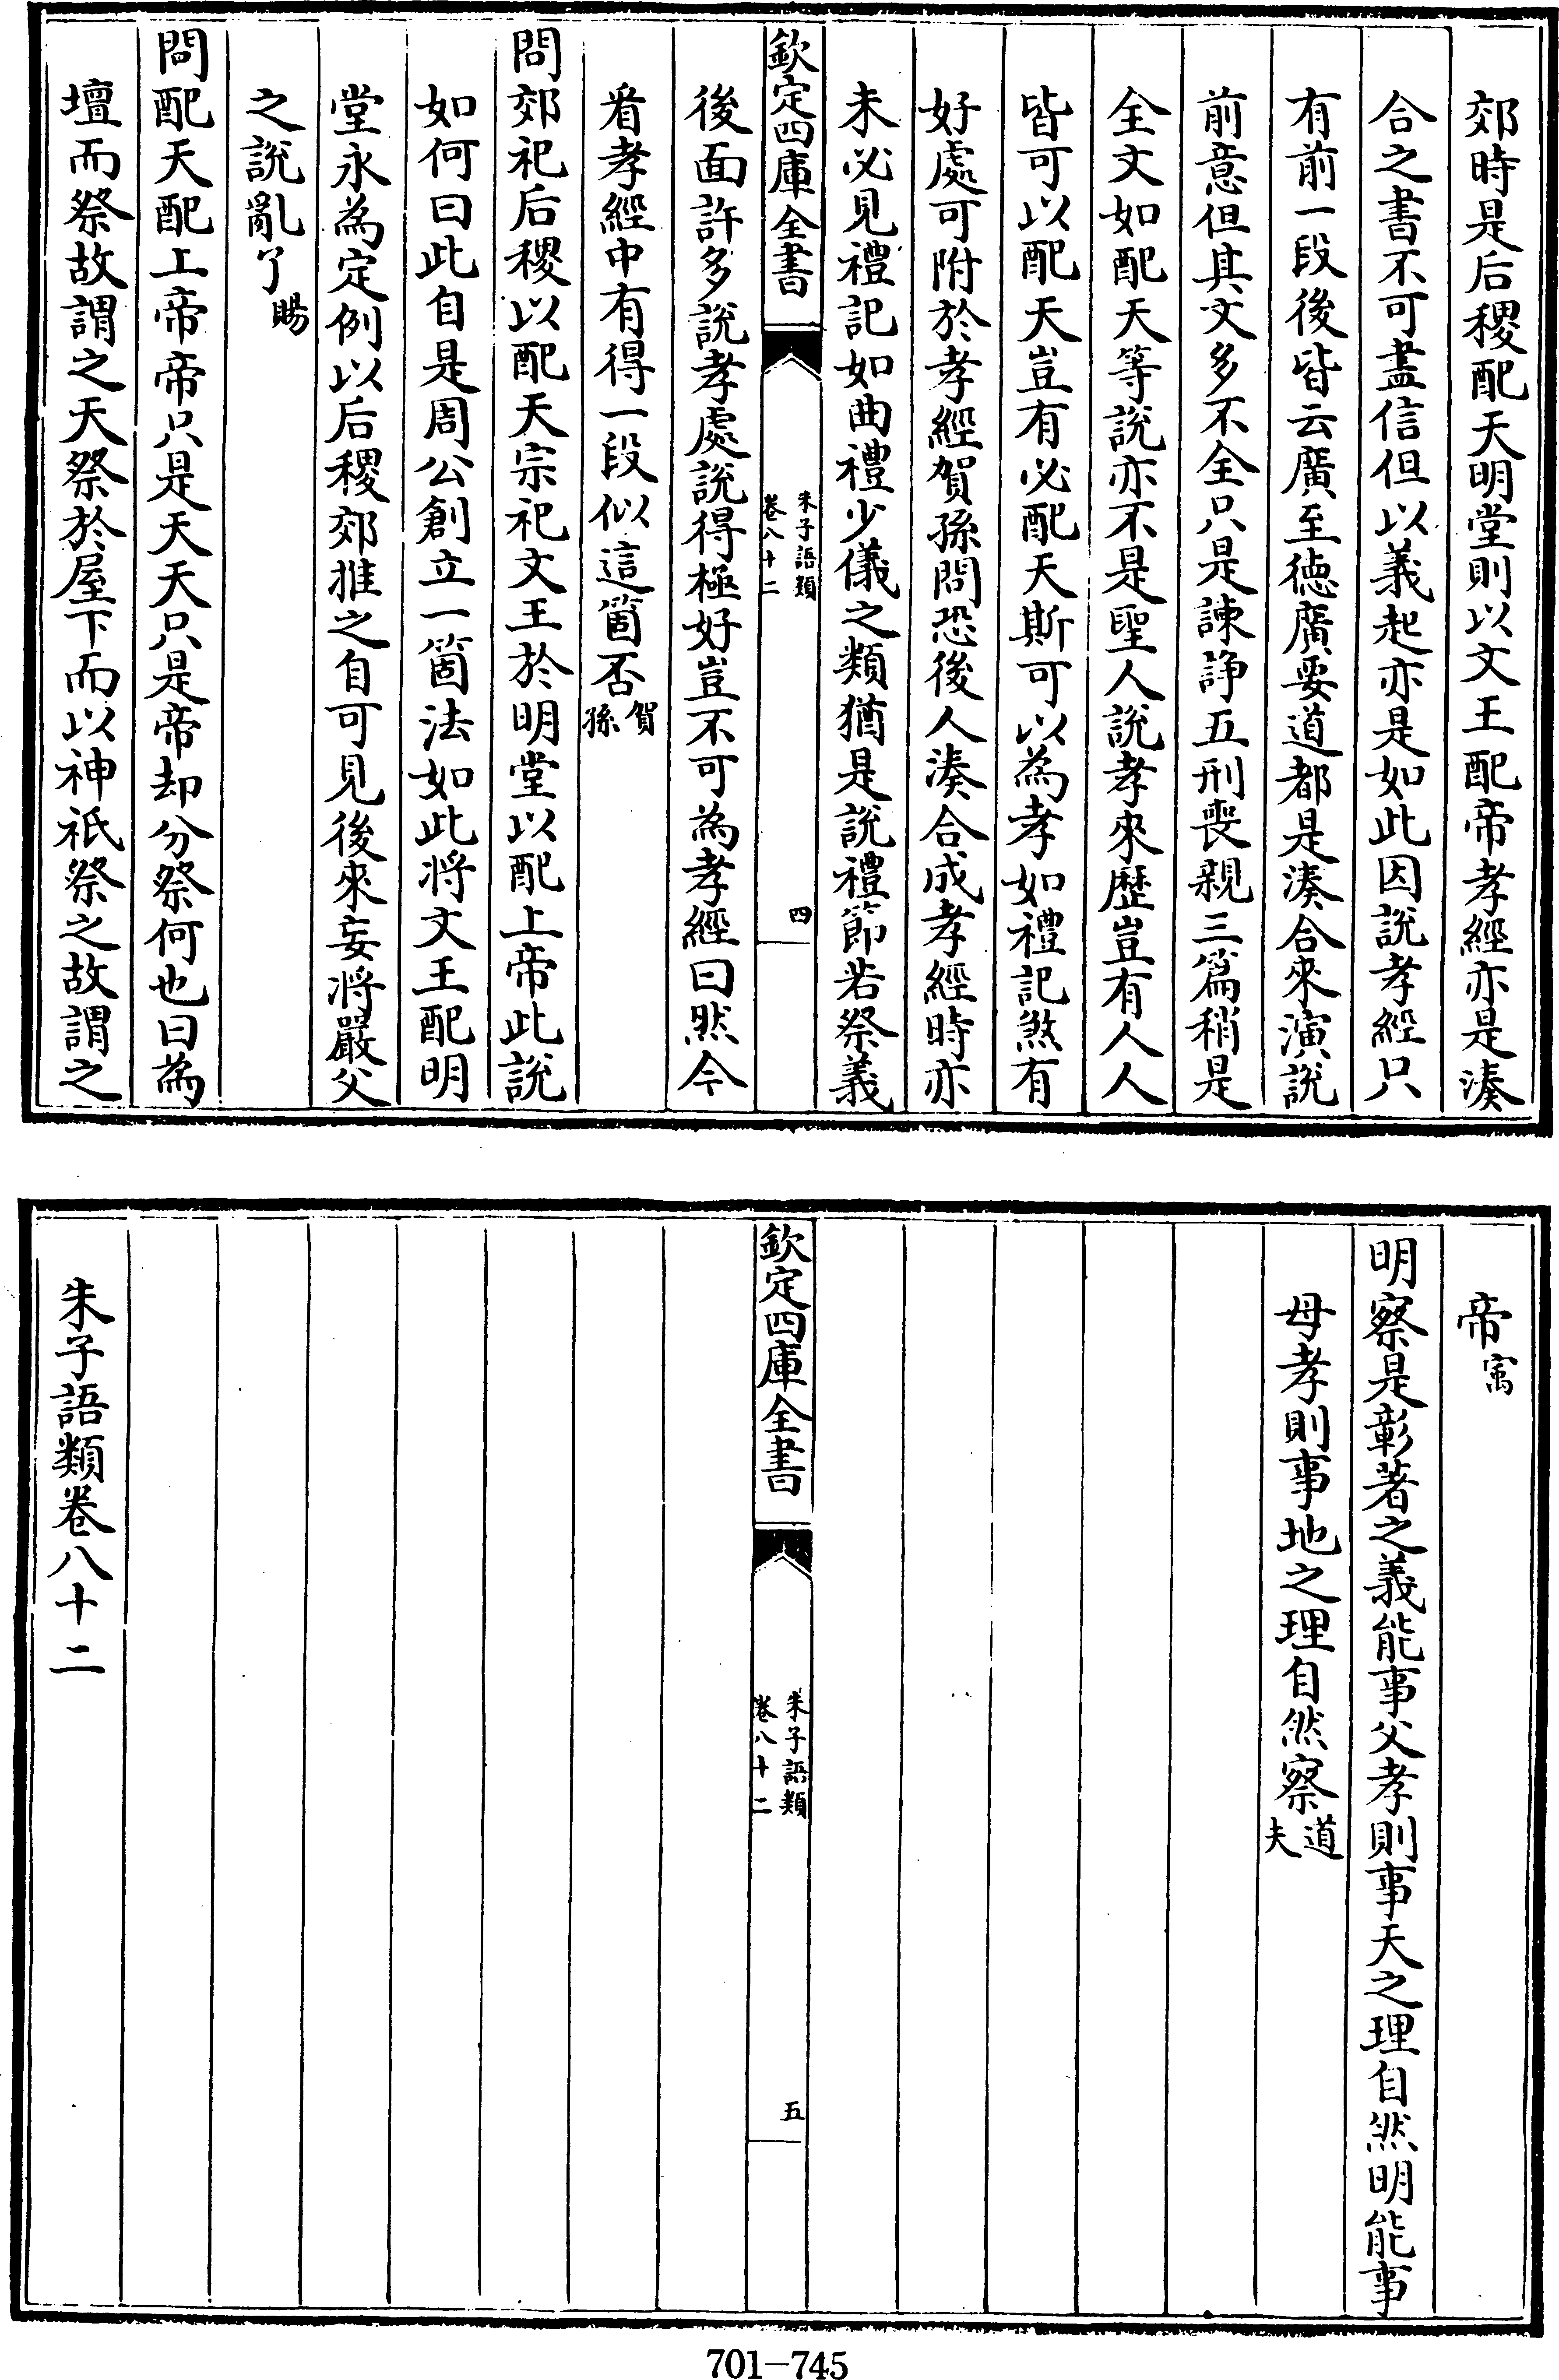 郊時是后稷配天明堂則以文王配帝孝經亦是湊
合之書不可盡信但以義起亦是如此因說孝經只
有前一段後皆云廣至德廣要道都是湊合來演說
前意但其文多不全只是諫諍五刑喪親三篇稍是
全文如配天等說亦不是聖人說孝來歷豈有人人
皆可以配天豈有必配天斯可以為孝如禮記煞有
好處可附於孝經賀孫問恐後人湊合成孝經時亦
未必見禮記如曲禮少儀之類猶是說禮節若祭義
欽定四庫全書
朱子語類
卷八十二
四
後面許多說孝處說得極好豈不可為孝經曰然今
看孝經中有得一段似這箇否賀孫
問郊祀后稷以配天宗祀文王於明堂以配上帝此說
如何曰此自是周公創立一箇法如此將文王配明
堂永為定例以后稷郊推之自可見後來妄將嚴父
之說亂了賜
問配天配上帝帝只是天天只是帝却分祭何也曰為
壇而祭故謂之天祭於屋下而以神祇祭之故謂之
帝㝢
明察是彰著之義能事父孝則事天之理自然明能事
母孝則事地之理自然察道夫
欽定四庫全書
朱子語類
卷八十二
五
朱子語類卷八十二
701-745